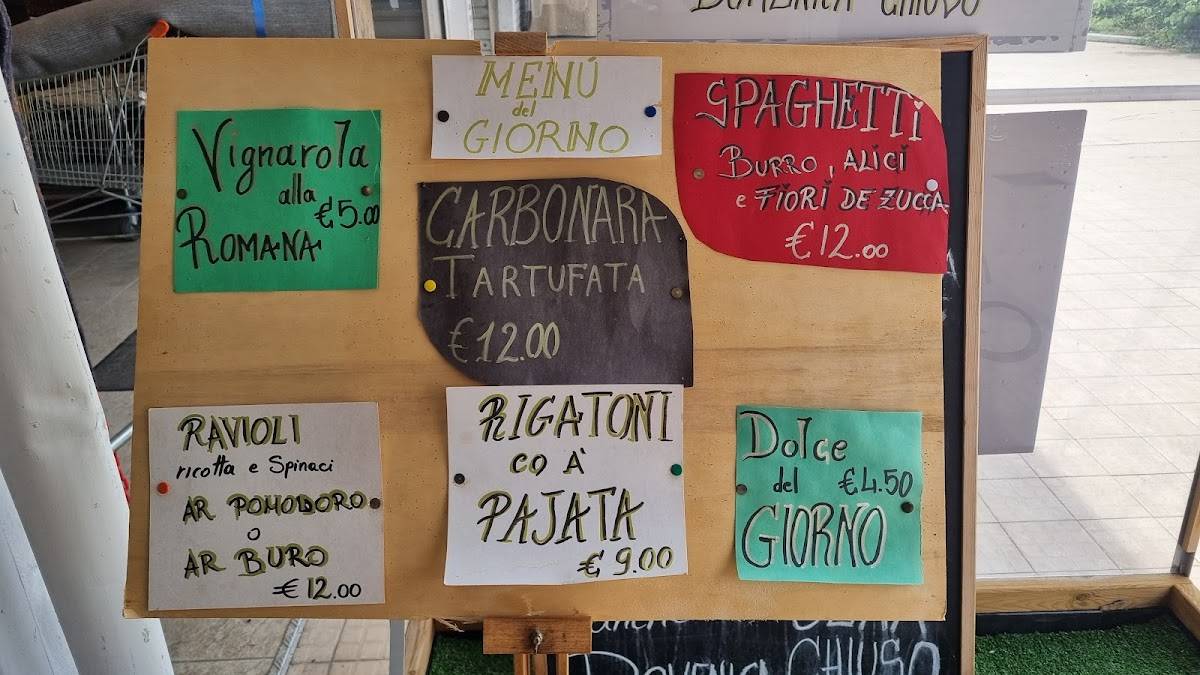 DOMENICA CHIUSO
MENÚ
del
GIORNO
Vignarola
alla
€5.00
ROMANA
CARBONARA
TARTUFATA
€12.00
SPAGHETTI
BURRO, ALICI
e FIORI DE ZUCCA
€12.00
RAVIOLI
ricotta e Spinaci
AR POMODORO
o
AR BURO
€12.00
RIGATONI
CO À
PAJATA
€9.00
Dolce
del €4.50
GIORNO
DOMENICA CHIUSO